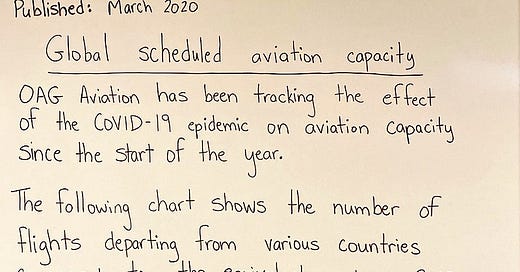 Published: March 2020
Global scheduled aviation capacity
OAG Aviation has been tracking the effect
of the COVID-19 epidemic on aviation capacity
since the start of the year.
The following chart shows the number of
flights departing from various countries
the